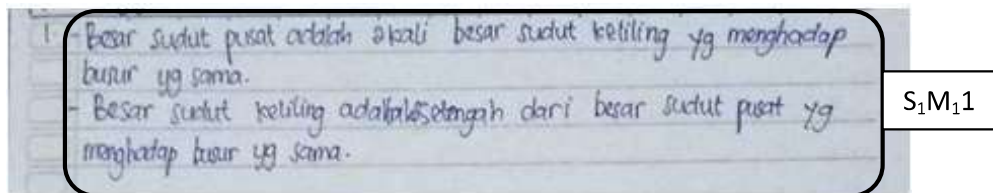 1 - Besar sudut pusat adalah 2 kali besar sudut keliling yg menghadap
busur yg sama.
- Besar sudut keliling adalah setengah dari besar sudut pusat yg
menghadap busur yg sama.
S₁M₁1